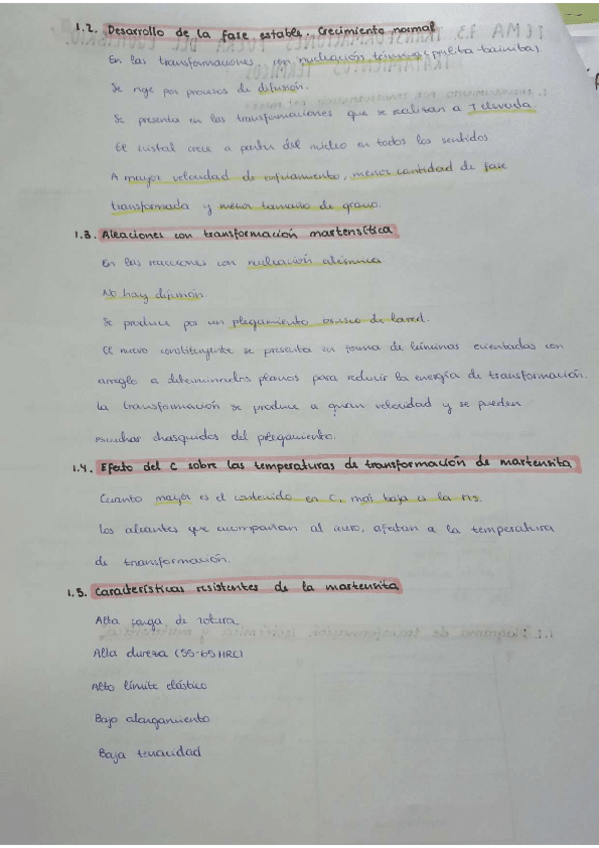 1.2. Desarrollo de la fase estable. Crecimiento normal
En las transformaciones con nucleación térmica (perlita-bainita).
Se rige por procesos de difusión.
Se presenta en las transformaciones que se realizan a T elevada.
El cristal crece a partir del núcleo en todos los sentidos
A mayor velocidad de enfriamiento, menor cantidad de fase
transformada y menor tamaño de grano.
1.3. Aleaciones con transformación martensítica
En las reacciones con nucleación atérmica
No hay difusión
Se produce por un plegamiento brusco de la red.
El nuevo constituyente se presenta en forma de láminas orientadas con
arreglo a determinados planos para reducir la energía de transformación.
La transformación se produce a gran velocidad y se pueden
escuchar chasquidos del plegamiento.
1.4. Efecto del C sobre las temperaturas de transformación de martensita
Cuanto mayor es el contenido en C, más baja es la Ms.
Los aleantes que acompañan al acero, afectan a la temperatura
de transformación.
1.5. Características resistentes de la martensita
Alta carga de rotura
Alta dureza (55-65 HRC)
Alto límite elástico
Bajo alargamiento
Baja tenacidad